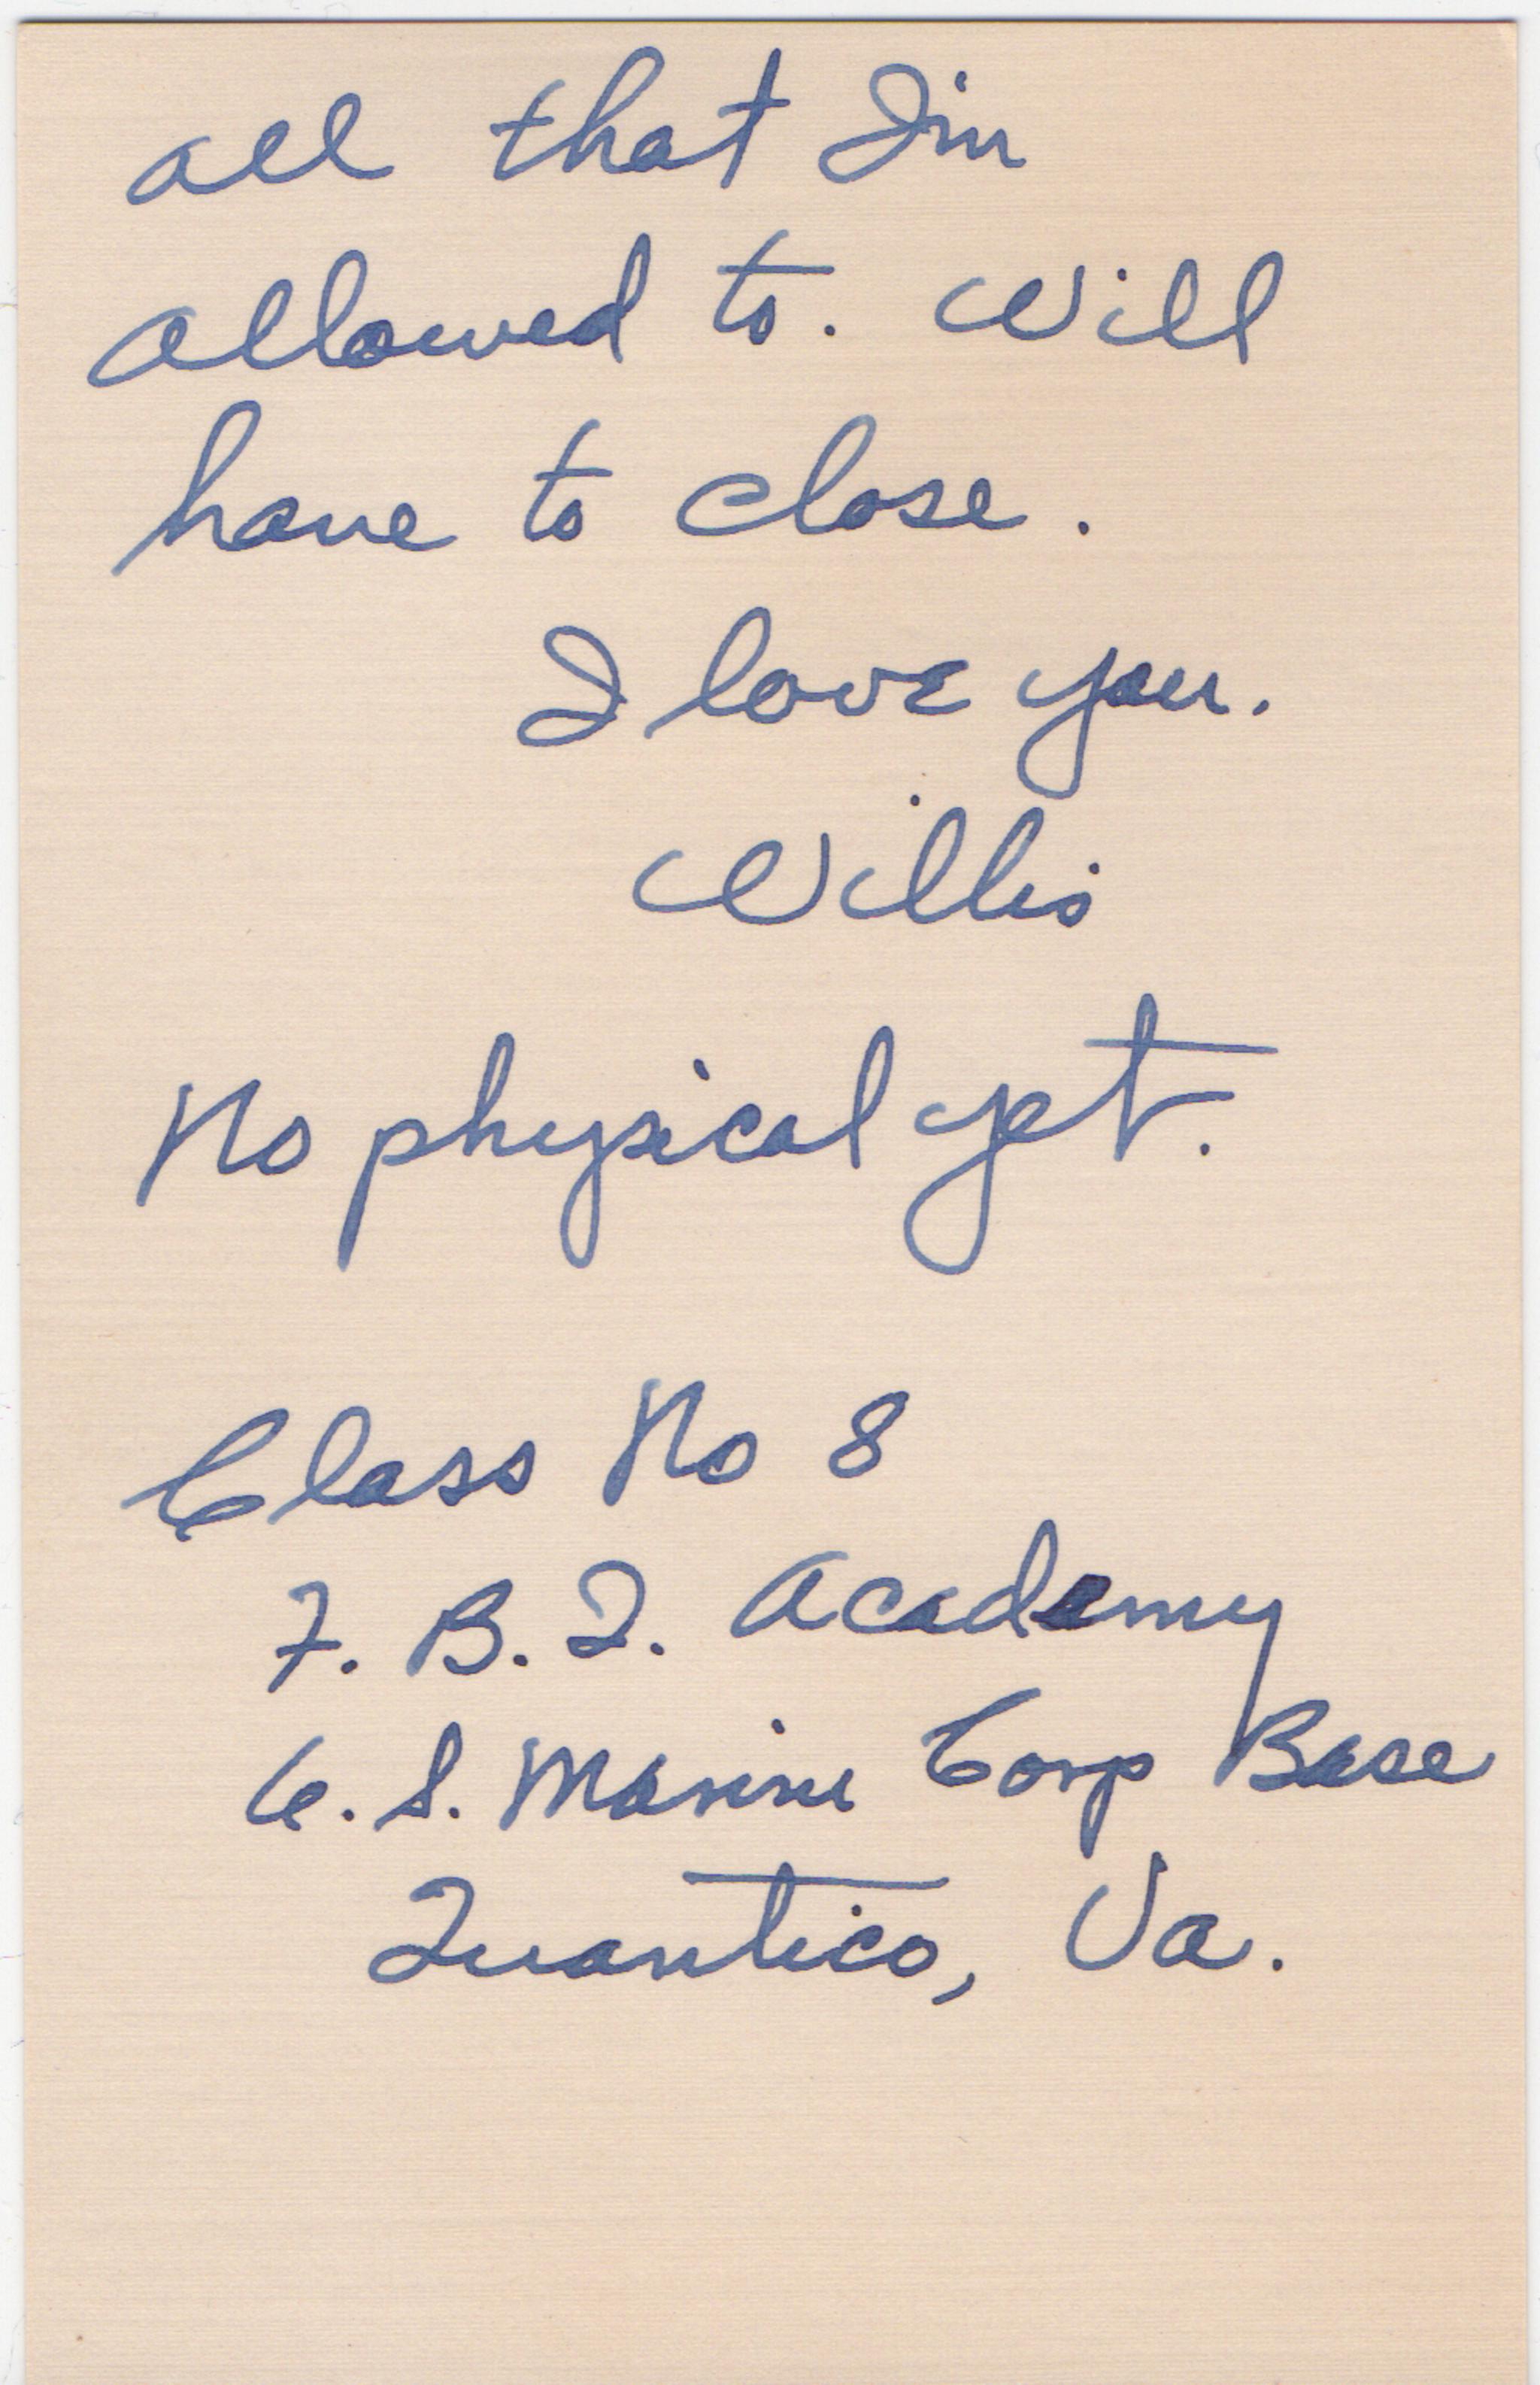 all that I'm
allowed to. Will
have to close.
I love you.
Willis
No physical yet.
Class No 8
F. B. I. Academy
U. S. Marine Corp Base
Quantico, Va.